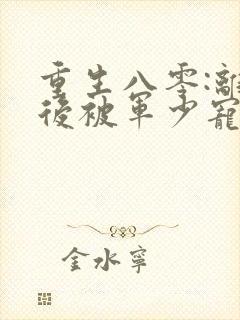 重生八零:離
後被軍少寵
金水寧